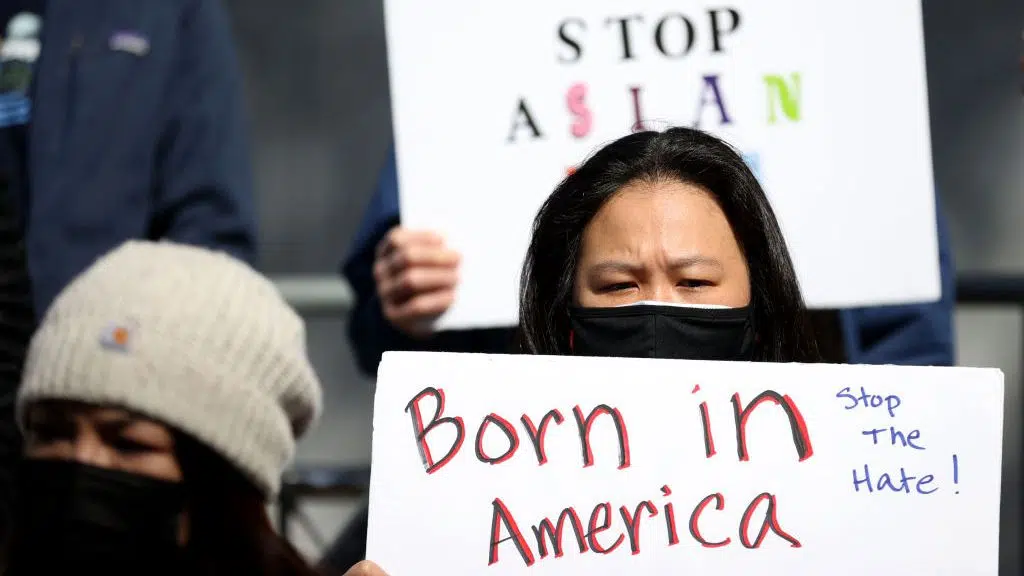 STOP
ASIAN
Born in
America
Stop
The
Hate!